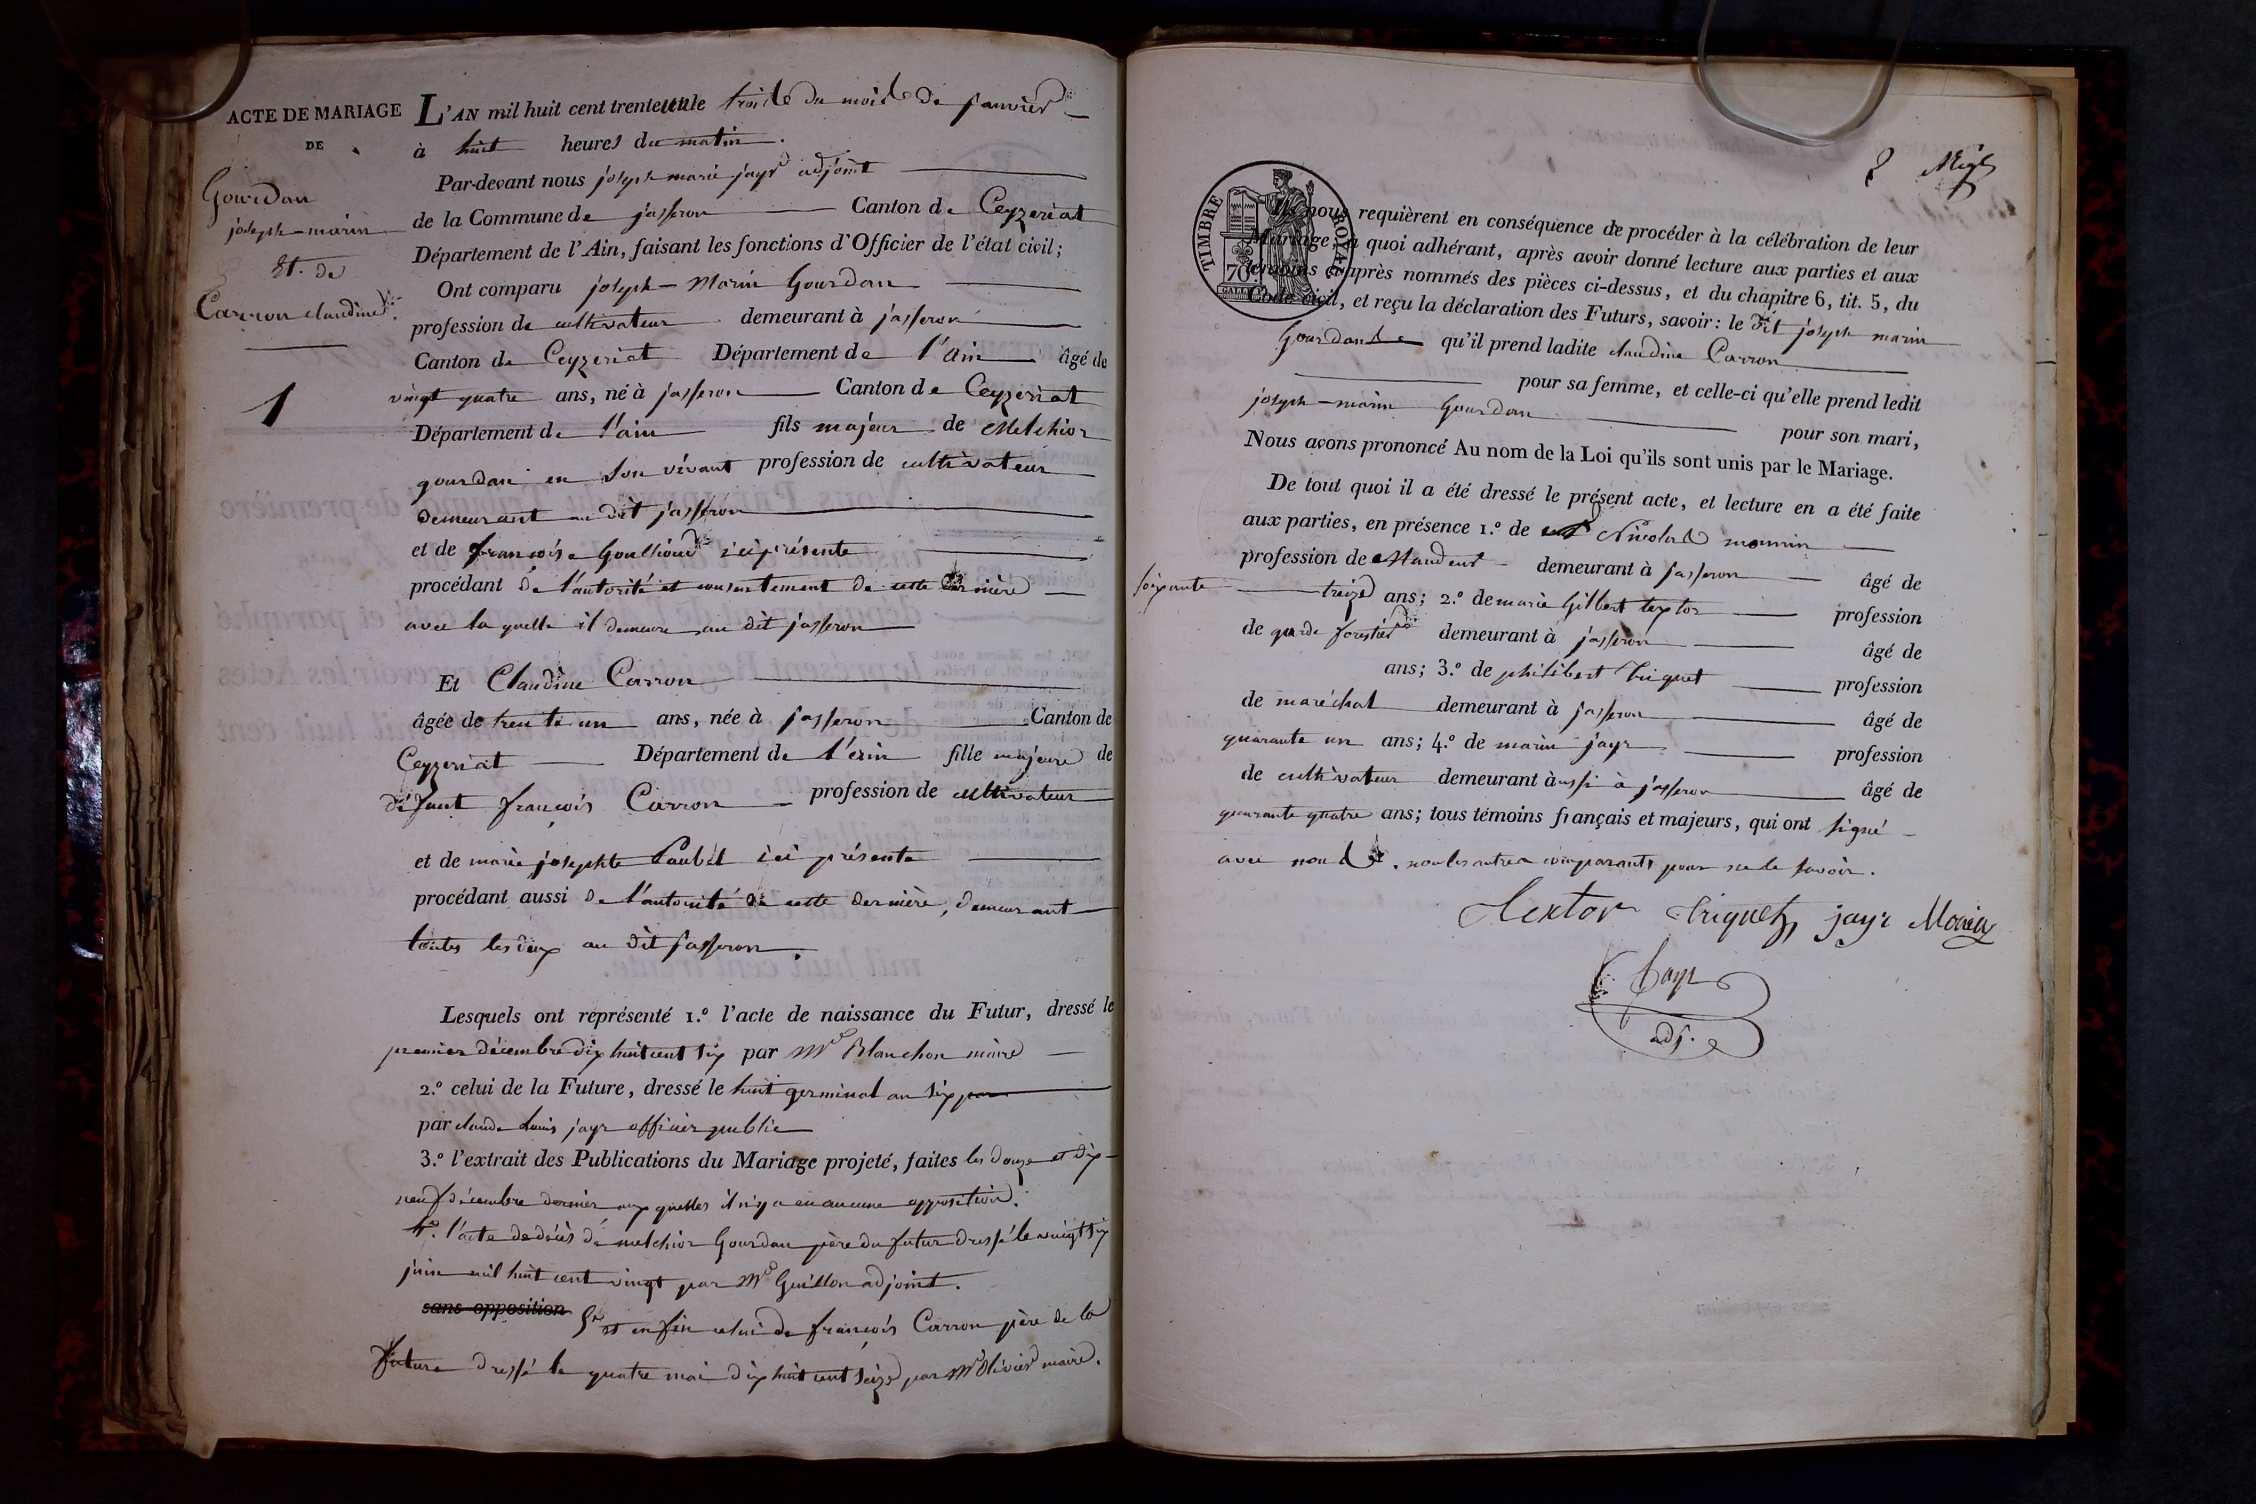 ACTE DE MARIAGE
DE
Gourdan
joseph-marin
Et. de
Carron claudine
1
L'AN mil huit cent trente un le trois du mois de janvier
à huit heures du matin.
Par-devant nous joseph marie jayr adjoint
de la Commune de jasseron Canton de Ceyzeriat
Département de l'Ain, faisant les fonctions d'Officier de l'état civil;
Ont comparu joseph-Marin Gourdan
profession de cultivateur demeurant à jasseron
Canton de Ceyzeriat Département de l'Ain âgé de
vingt quatre ans, né à jasseron Canton de Ceyzeriat
Département de l'ain fils majeur de Melchior
gourdan en son vivant profession de cultivateur
demeurant au dit jasseron
et de françoise ici présente
procédant de l'autorité et consentement de cette dernière
avec la quelle il demeure au dit jasseron
Et Claudine Carron
âgée de trente un ans, née à jasseron Canton de
Ceyzeriat Département de l'ain fille majeure de
défunt françois Carron profession de cultivateur
et de marie josephte ici présente
procédant aussi de l'autorité de cette dernière, demeurant
toutes les deux au dit jasseron.
Lesquels ont représenté 1.º l'acte de naissance du Futur, dressé le
premier décembre dix huit cent six par Mr Blanchon maire
2.º celui de la Future, dressé le huit germinal an six par
par claude Louis jayr officier public
3.º l'extrait des Publications du Mariage projeté, faites les douze et dix
neuf décembre dernier aux quelles il n'y a eu aucune opposition.
4º. l'acte de décès de melchior Gourdan père du futur dressé le vingt six
juin mil huit cent vingt par Mr Guillon adjoint.
sans opposition 5º et enfin celui de françois Carron père de la
future dressé le quatre mai dix huit cent seize par Mr Olivier maire.
2
TIMBRE ROYAL
70
Ils nous requièrent en conséquence de procéder à la célébration de leur
Mariage; à quoi adhérant, après avoir donné lecture aux parties et aux
témoins ci-après nommés des pièces ci-dessus, et du chapitre 6, tit. 5, du
Code civil, et reçu la déclaration des Futurs, savoir: le dit joseph marin
Gourdan qu'il prend ladite claudine Carron
pour sa femme, et celle-ci qu'elle prend ledit
joseph-marin Gourdan pour son mari,
Nous avons prononcé Au nom de la Loi qu'ils sont unis par le Mariage.
De tout quoi il a été dressé le présent acte, et lecture en a été faite
aux parties, en présence 1.º de Nicolas
profession de demeurant à jasseron âgé de
soixante treize ans; 2.º de marie Gilbert textor profession
de garde forestier demeurant à jasseron âgé de
ans; 3.º de philibert triquet profession
de maréchal demeurant à jasseron âgé de
quarante un ans; 4.º de marin jayr profession
de cultivateur demeurant aussi à jasseron âgé de
quarante quatre ans; tous témoins français et majeurs, qui ont signé
avec nous, non les autres comparants pour ne le savoir.
Textor triquet jayr
Jayr
adj.